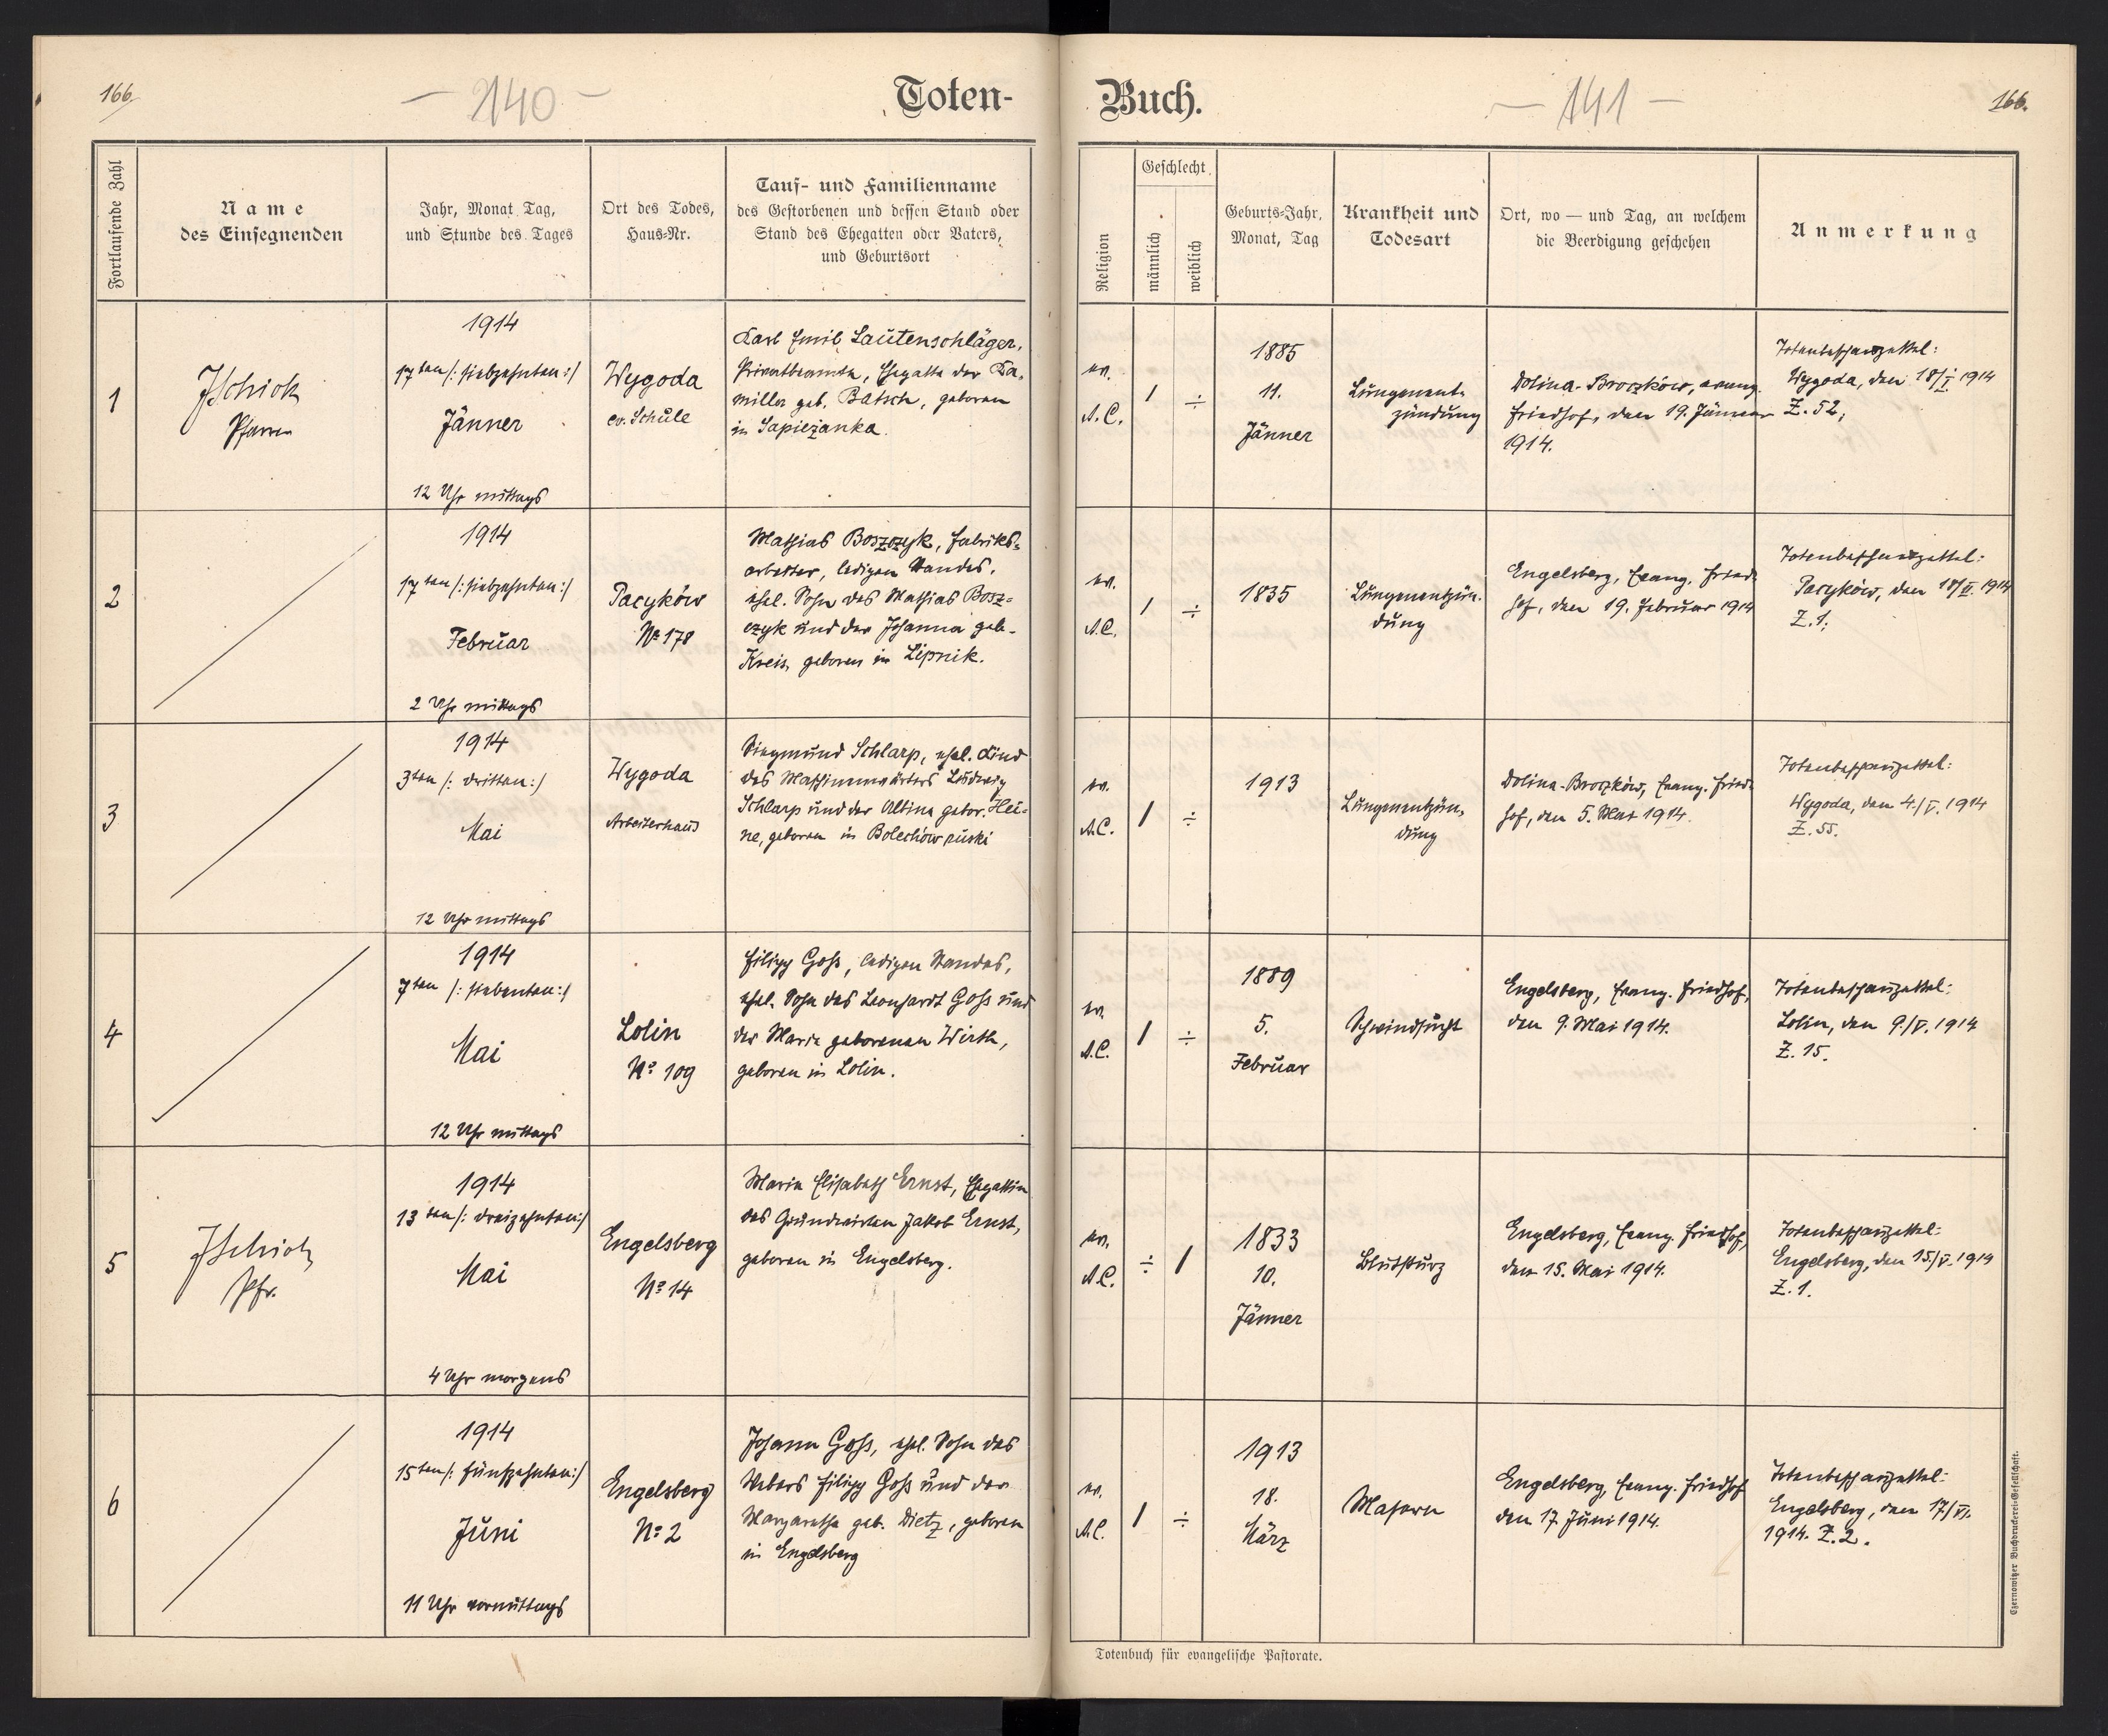 166.
— 140 —
Toten-
Fortlaufende Zahl
Name
des Einsegnenden
Jahr, Monat Tag,
und Stunde des Tages
Ort des Todes,
Haus-Nr.
Tauf- und Familienname
des Gestorbenen und dessen Stand oder
Stand des Ehegatten oder Vaters,
und Geburtsort
1
Pfarrer
1914
17ten /: siebzehnten :/
Jänner
12 Uhr mittags
Wygoda
ev. Schule
Karl Emil Lautenschläger,
Privatbeamter, Ehegatte der Ka-
miller geb. Batsch, geboren
in Sapieżanka.
2
1914
17ten /: siebzehnten :/
Februar
2 Uhr mittags
Pacyków
No 178
Mathias Boszczyk, Fabriks-
arbeiter, ledigen Standes,
ehel. Sohn des Mathias Bosz-
czyk und der Johanna geb.
Kreis, geboren in Lipnik.
3
1914
3ten /: dritten :/
Mai
12 Uhr mittags
Wygoda
Arbeiterhaus
Siegmund Schlarp, ehel. Kind
des Maschinenwärters Ludwig
Schlarp und der Albina gebor. Hei-
ne, geboren in Bolechów ruski
4
1914
7ten /: siebenten :/
Mai
12 Uhr mittags
Lolin
No 109
Filipp Goß, ledigen Standes,
ehel. Sohn des Leonhardt Goß und
der Maria geborenen Wirth,
geboren in Lolin.
5
Pfr.
1914
13ten /: dreizehnten :/
Mai
4 Uhr morgens
Engelsberg
No 14
Maria Elisabeth Ernst, Ehegattin
des Grundwirten Jakob Ernst,
geboren in Engelsberg.
6
1914
15ten /: fünfzehnten :/
Juni
11 Uhr vormittags
Engelsberg
No 2
Johann Goß, ehel. Sohn des
Webers Filipp Goß und der
Margaretha geb. Dietz, geboren
in Engelsberg
Buch.
— 141 —
166.
Religion
Geschlecht
männlich
weiblich
Geburts-Jahr,
Monat, Tag
Krankheit und
Todesart
Ort, wo — und Tag, an welchem
die Beerdigung geschehen
Anmerkung
ev.
A.C.
1
÷
1885
11.
Jänner
Lungenent-
zündung
Dolina-Broczków, evang.
Friedhof, den 19. Jänner
1914.
Totenbeschauzettel:
Wygoda, den 18/I 1914
Z. 52;
ev.
A.C.
1
÷
1835
Lungenentzün-
dung
Engelsberg, Evang. Fried-
hof, den 19. Februar 1914
Totenbeschauzettel:
Pacyków, den 18/II. 1914
Z. 1;
ev.
A.C.
1
÷
1913
Lungenentzün-
dung
Dolina-Broczków, Evang. Fried-
hof, den 5. Mai 1914.
Totenbeschauzettel:
Wygoda, den 4./V. 1914
Z. 55.
ev.
A.C.
1
÷
1889
5.
Februar
Schwindsucht
Engelsberg, Evang. Friedhof,
den 9. Mai 1914.
Totenbeschauzettel:
Lolin, den 9./V. 1914
Z. 15.
ev.
A.C.
÷
1
1833
10.
Jänner
Blutsturz
Engelsberg, Evang. Friedhof,
den 15. Mai 1914.
Totenbeschauzettel:
Engelsberg, den 15./V. 1914
Z. 1.
ev.
A.C.
1
÷
1913
18.
März
Masern
Engelsberg, Evang. Friedhof
den 17. Juni 1914.
Totenbeschauzettel:
Engelsberg, den 17/VI.
1914. Z. 2.
Totenbuch für evangelische Pastorate.
Czernowitzer Buchdruckerei-Gesellschaft.